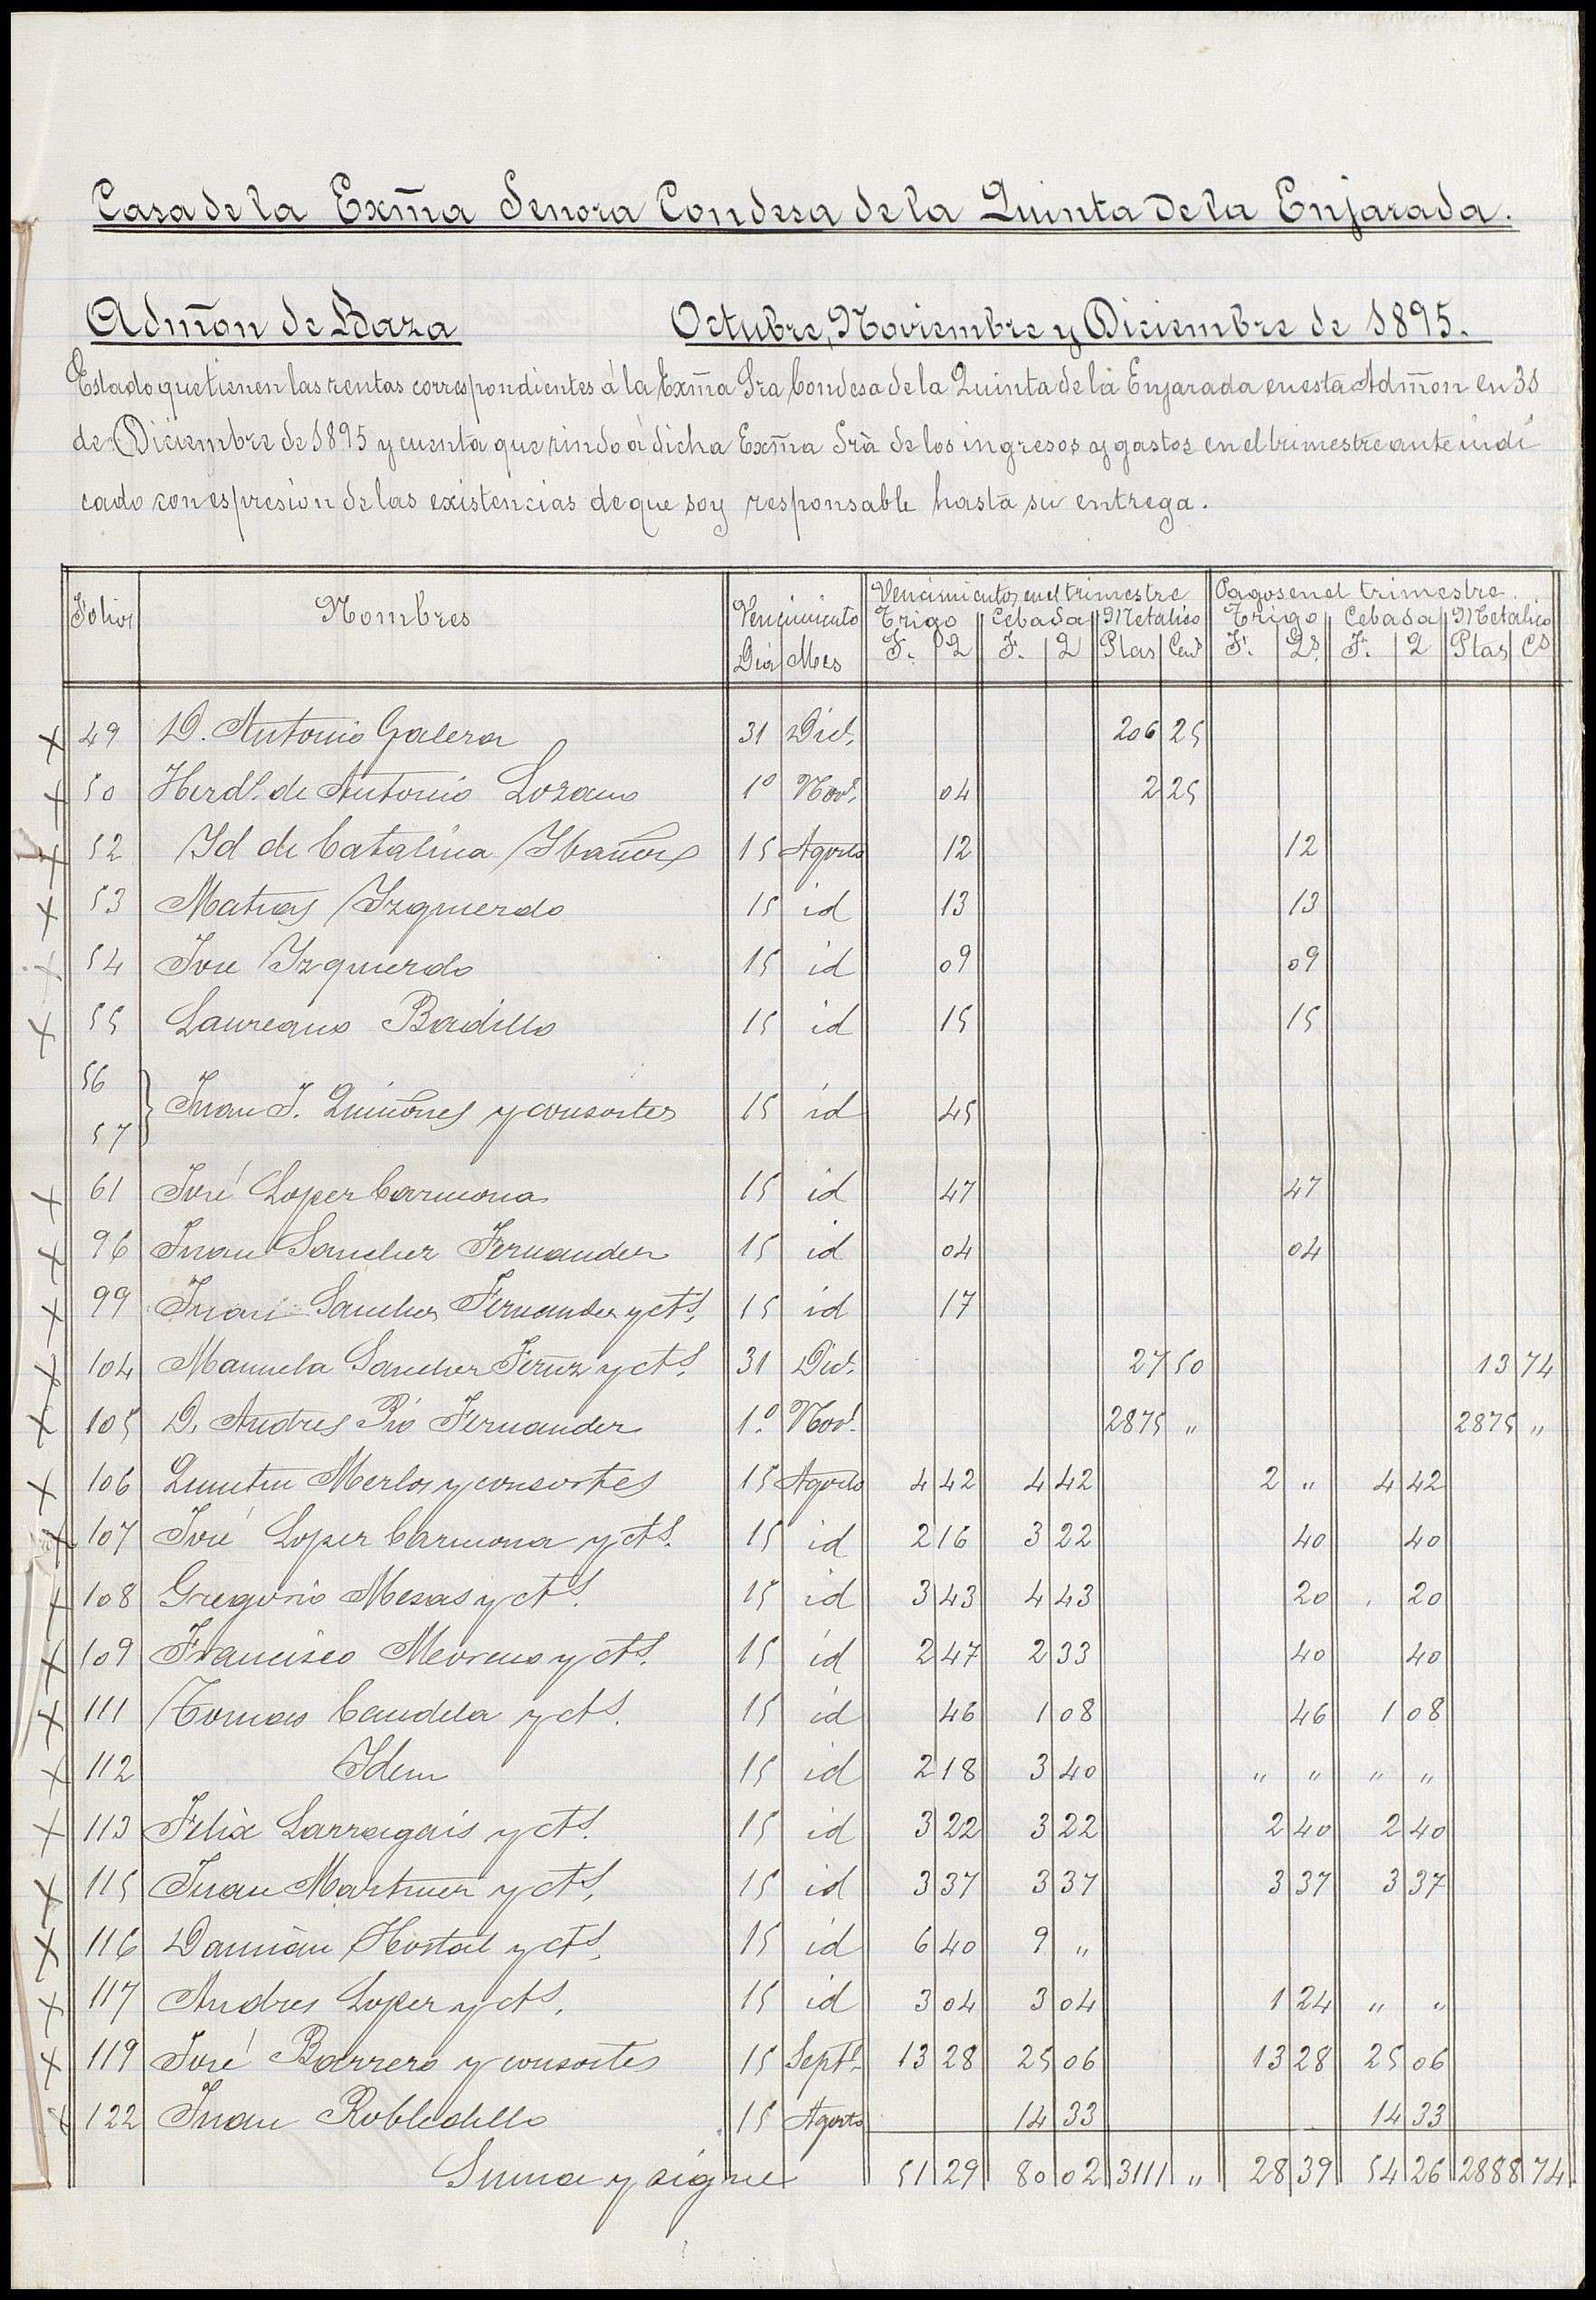 Casa de la Exm̃a Senora Condesa de la Quinta de la Enjarada.
Admõn de Baza Octubre, Noviembre y Diciembre de 1895.
Estado que tienen las rentas correspondientes á la Exm̃a Sra Condesa de la Quinta de la Enjarada en esta Adm̃on en 31
de Diciembre de 1895 y cuenta que rindo á dicha Exm̃a Srà de los ingresos y gastos en el trimestre ante indi
cado con espresion de las existencias de que soy responsable hasta su entrega.
Folios Nombres Vencimiento Vencimientos en el trimestre Pagos en el trimestre.
Trigo Cebada Metalico Trigo Cebada Metalico
Dia Mes F. Q F. Q Ptas Cents F. Qs F. Q Ptas Cs
x 49 D. Antonio Galera 31 Dice. 206 25
x 50 Herds. de Antonio Lozano 1º Nove. 04 2 25
x 52 Id de Catalina Ibañez 15 Agosto 12 12
x 53 Matias Izquierdo 15 id 13 13
x 54 Jose Izquierdo 15 id 09 09
x 55 Laureano Badillo 15 id 15 15
56
57 } Juan J. Quiñones y consortes 15 id 45
x 61 José Lopez Carmona 15 id 47 47
x 96 Juan Sanchez Fernandez 15 id 04 04
x 99 Juan Sanchez Fernandez y cts. 15 id 17
x 104 Manuela Sanchez Fernz y cts. 31 Dice. 27 50 13 74
x 105 D. Andres Pio Fernandez 1.º Nove. 2875 " 2875 "
x 106 Quintin Merlos y consortes 15 Agosto 4 42 4 42 2 " 4 42
x 107 José Lopez Carmona y cts. 15 id 2 16 3 22 40 40
x 108 Gregorio Mesas y cts. 15 id 3 43 4 43 20 20
x 109 Francisco Moreno y cts. 15 id 2 47 2 33 40 40
x 111 Tomas Candela y cts. 15 id 46 1 08 46 1 08
x 112 Idem 15 id 2 18 3 40 " " " "
x 113 Felix Larragais y cts. 15 id 3 22 3 22 2 40 2 40
x 115 Juan Martinez y cts. 15 id 3 37 3 37 3 37 3 37
x 116 Damián Hostal y cts. 15 id 6 40 9 "
x 117 Andres Lopez y cts. 15 id 3 04 3 04 1 24 " "
x 119 José Barrero y consortes 15 Septe. 13 28 25 06 13 28 25 06
x 122 Juan Robledillo 15 Agosto 14 33 14 33
Suma y sigue 51 29 80 02 3111 " 28 39 54 26 2888 74